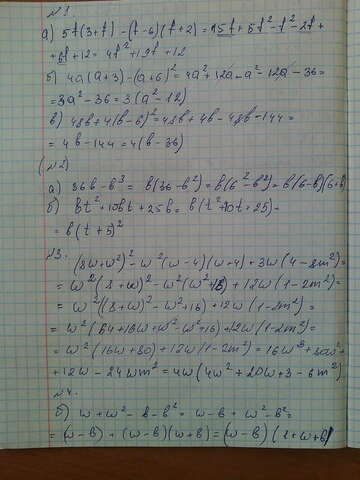 №1
а) 5t(3+t) - (t-6)(t+2) = 15t + 5t² - t² - 2t +
+ 6t + 12 = 4t² + 19t + 12
б) 4a(a+3) - (a+6)² = 4a² + 12a - a² - 12a - 36 =
= 3a² - 36 = 3(a² - 12)
в) 48b + 4(b-6)² = 48b + 4b - 48b - 144 =
= 4b - 144 = 4(b - 36)
(№2)
а) 36b - b³ = b(36 - b²) = b(6² - b²) = b(6-b)(6+b)
б) bt² + 10bt + 25b = b(t² + 10t + 25) =
= b(t+5)²
№3.
(8w+w²)² - w²(w-4)(w+4) + 3w(4-8m²) =
= w²(8+w)² - w²(w²+16) + 12w(1-2m²) =
= w²((8+w)² - w² + 16) + 12w(1-2m²) =
= w²(64 + 16w + w² - w² + 16) + 12w(1-2m²) =
= w²(16w + 80) + 12w(1-2m²) = 16w³ + 80w² +
+ 12w - 24wm² = 4w(4w² + 20w + 3 - 6m²)
№4.
б) w + w² - b - b² = w - b + w² - b² =
= (w-b) + (w-b)(w+b) = (w-b)(1+w+b)